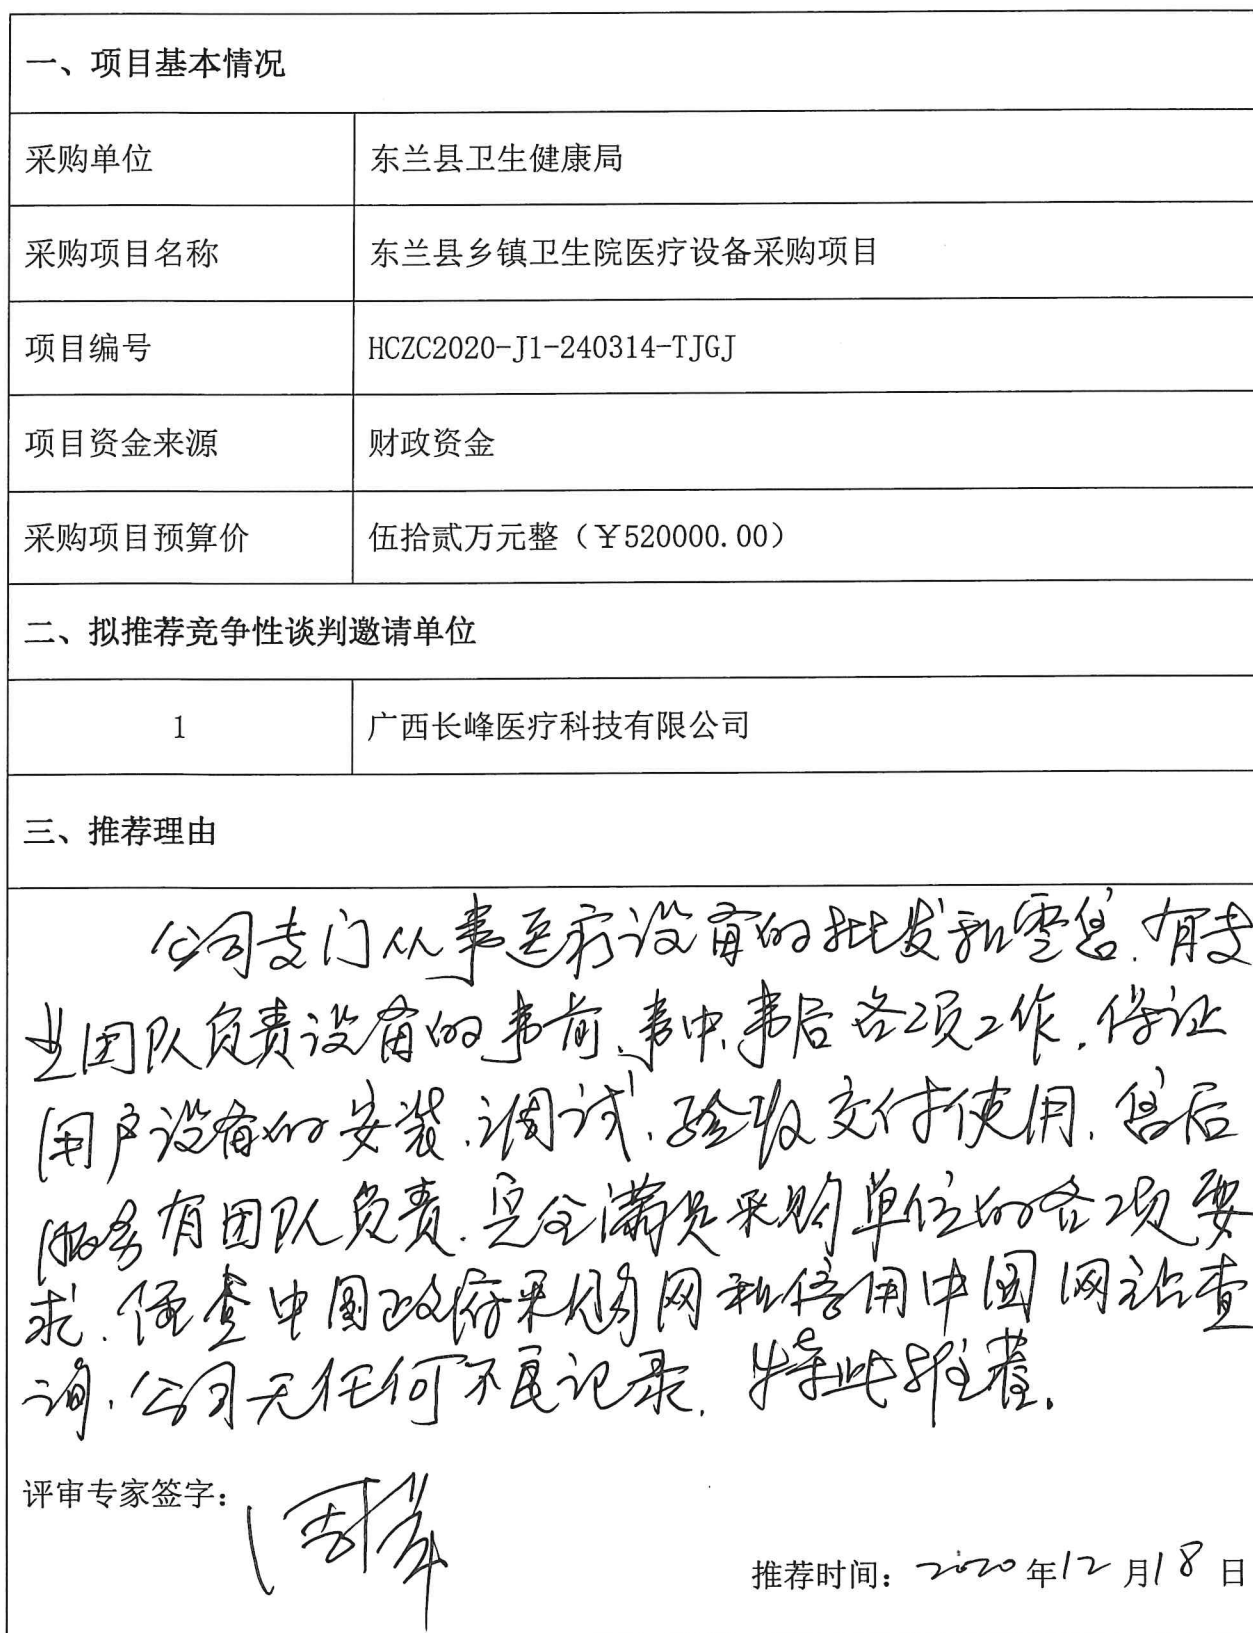 一、项目基本情况
采购单位 东兰县卫生健康局
采购项目名称 东兰县乡镇卫生院医疗设备采购项目
项目编号 HCZC2020-J1-240314-TJGJ
项目资金来源 财政资金
采购项目预算价 伍拾贰万元整（￥520000.00）
二、拟推荐竞争性谈判邀请单位
1 广西长峰医疗科技有限公司
三、推荐理由
公司专门从事医疗设备的批发和零售.有专
业团队负责设备的事前、事中、事后各项工作.保证
用户设备的安装、调试、验收交付使用.售后
服务有团队负责.完全满足采购单位的各项要
求.经查中国政府采购网和信用中国网站查
询.公司无任何不良记录.特此推荐.
评审专家签字：
推荐时间：2020年12月18日